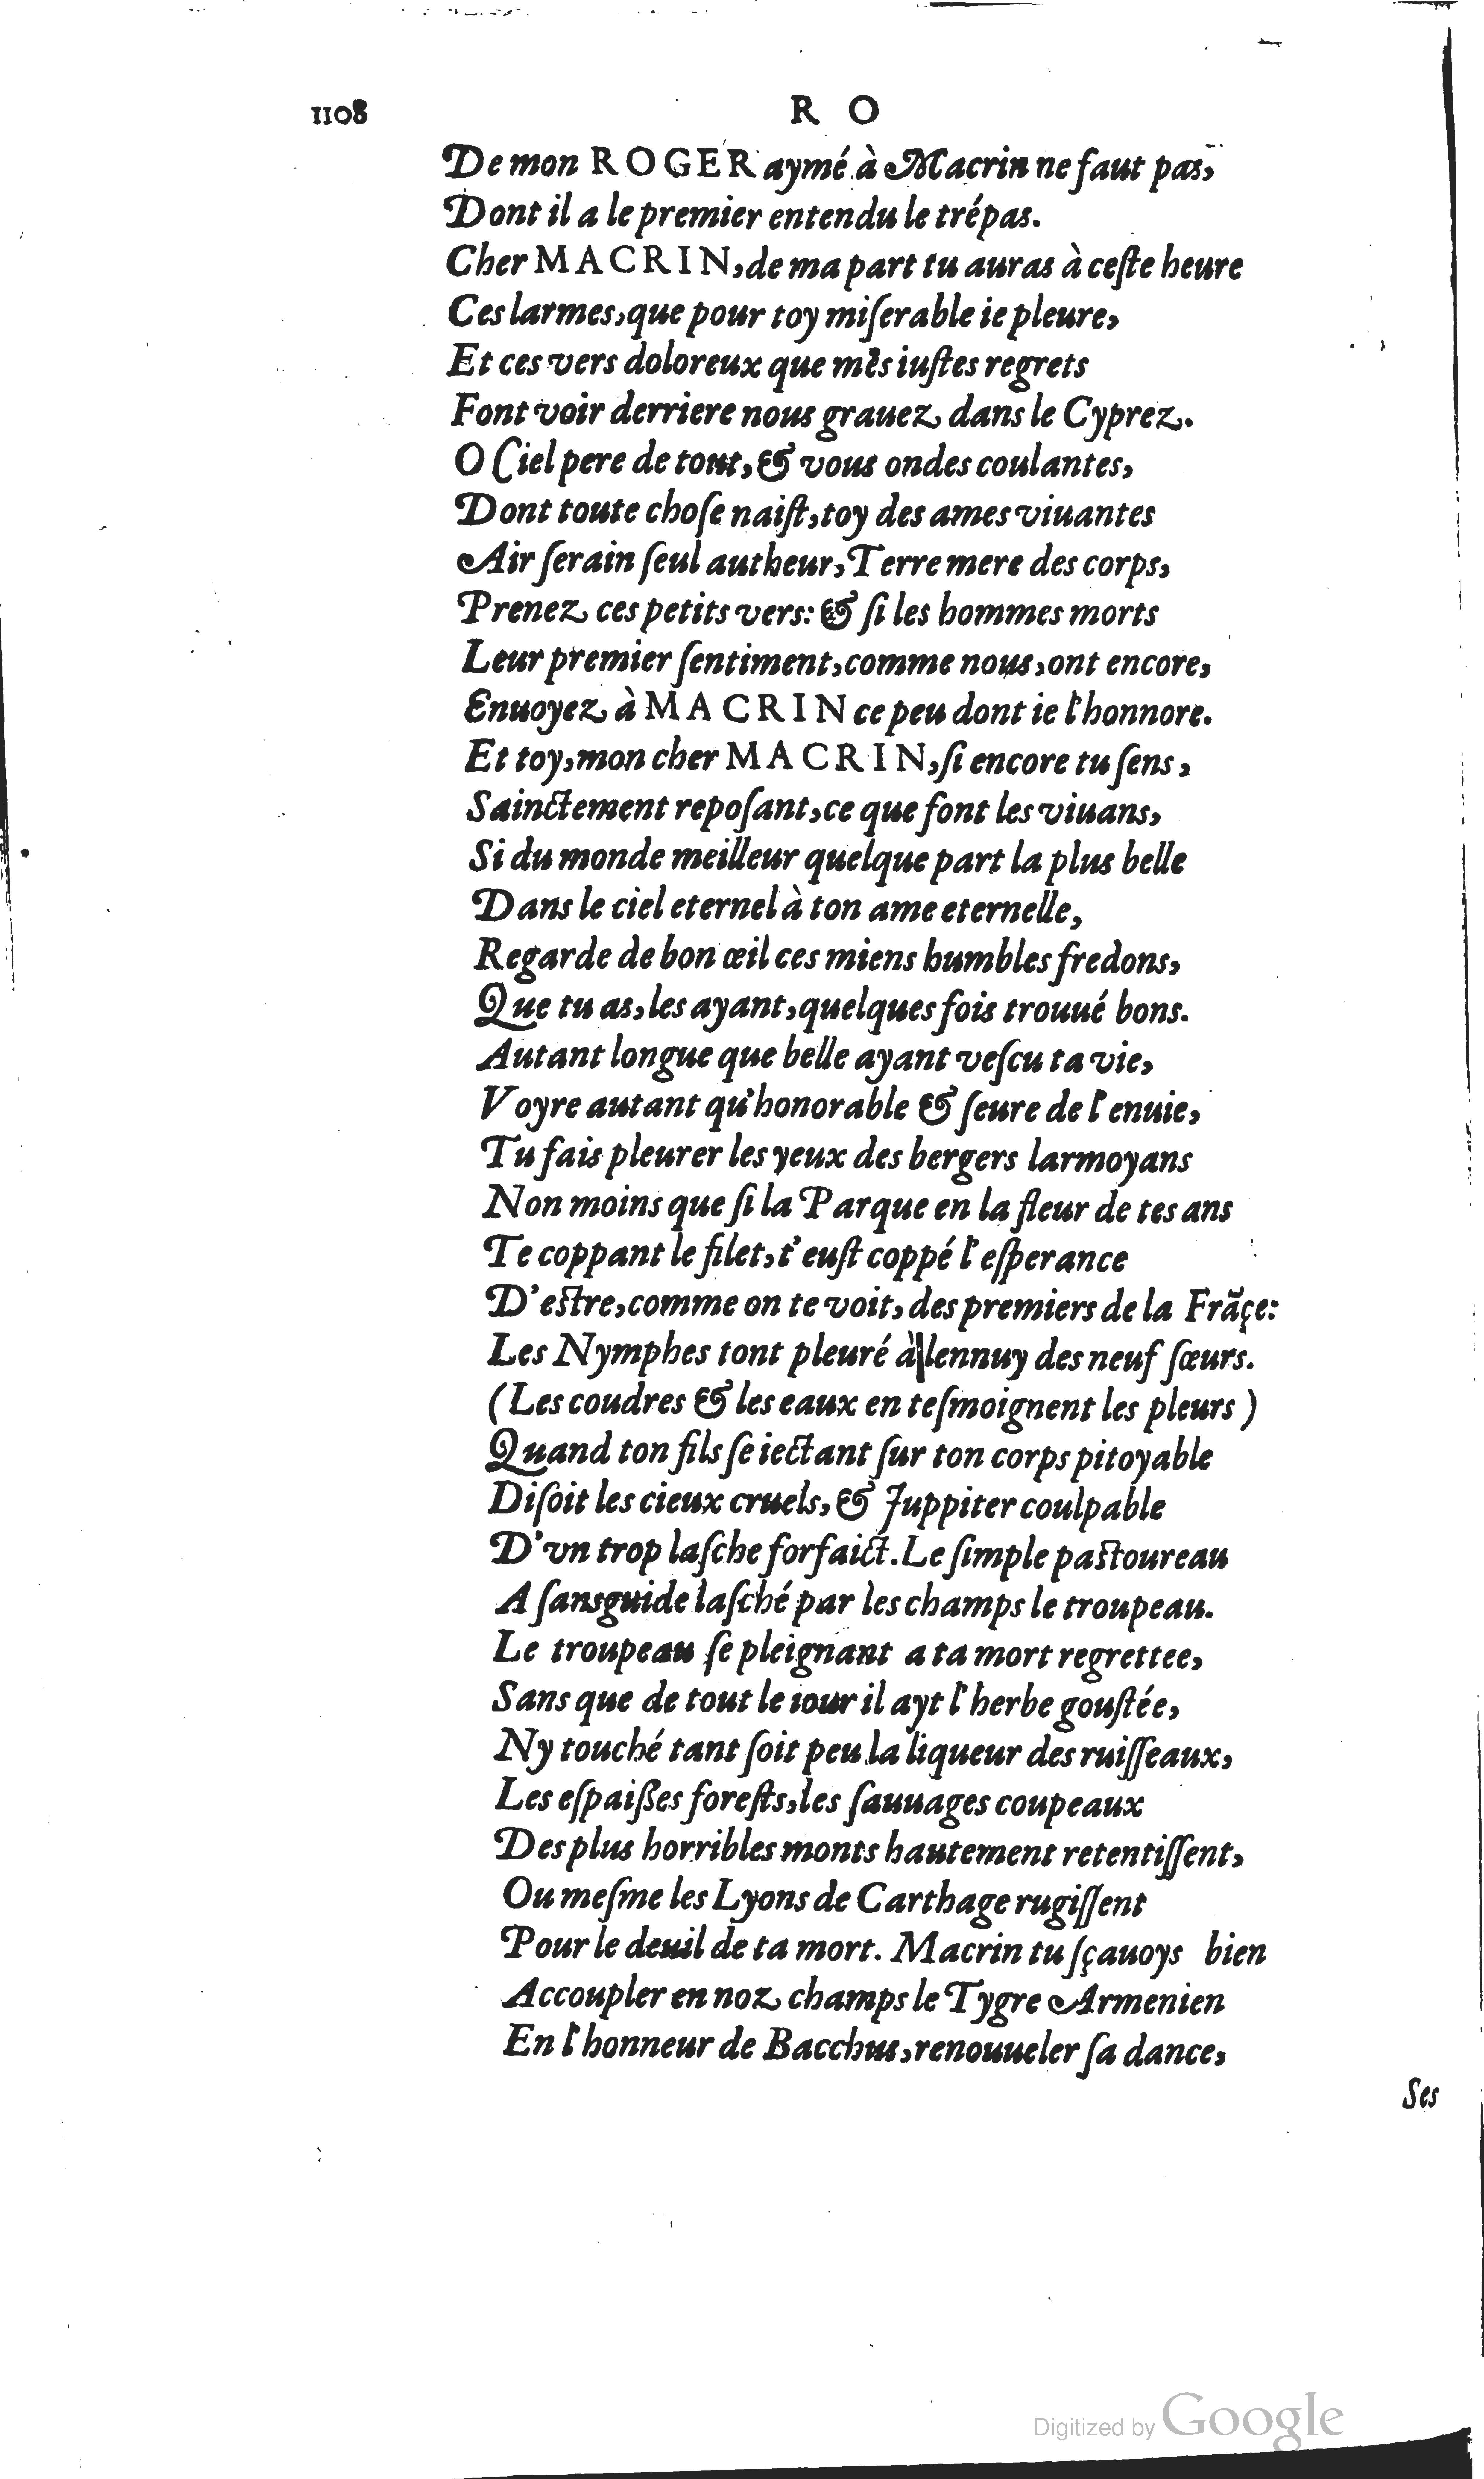 1108
R O
De mon ROGER aymé à Macrin ne faut pas,
Dont il a le premier entendu le trépas.
Cher MACRIN, de ma part tu auras à ceſte heure
Ces larmes, que pour toy miſerable ie pleure,
Et ces vers doloreux que mes iuſtes regrets
Font voir derriere nous grauez dans le Cyprez.
O Ciel pere de tout, & vous ondes coulantes,
Dont toute choſe naiſt, toy des ames viuantes
Air ſerain ſeul autheur, Terre mere des corps,
Prenez ces petits vers: & ſi les hommes morts
Leur premier ſentiment, comme nous, ont encore,
Enuoyez à MACRIN ce peu dont ie l'honnore.
Et toy, mon cher MACRIN, ſi encore tu ſens,
Sainctement repoſant, ce que font les viuans,
Si du monde meilleur quelque part la plus belle
Dans le ciel eternel à ton ame eternelle,
Regarde de bon œil ces miens humbles fredons,
Que tu as, les ayant, quelques fois trouué bons.
Autant longue que belle ayant veſcu ta vie,
Voyre autant qu'honorable & ſeure de l'enuie,
Tu fais pleurer les yeux des bergers larmoyans
Non moins que ſi la Parque en la fleur de tes ans
Te coppant le filet, t'euſt coppé l'eſperance
D'eſtre, comme on te voit, des premiers de la Frãçe:
Les Nymphes tont pleuré à lennuy des neuf ſœurs.
(Les coudres & les eaux en teſmoignent les pleurs)
Quand ton fils ſe iectant ſur ton corps pitoyable
Diſoit les cieux cruels, & Juppiter coulpable
D'vn trop laſche forfaict. Le ſimple paſtoureau
A ſans guide laſché par les champs le troupeau.
Le troupeau ſe pleignant a ta mort regrettee,
Sans que de tout le iour il ayt l'herbe gouſtée,
Ny touché tant ſoit peu la liqueur des ruiſſeaux,
Les eſpaißes foreſts, les ſauuages coupeaux
Des plus horribles monts hautement retentiſſent,
Ou meſme les Lyons de Carthage rugiſſent
Pour le deuil de ta mort. Macrin tu ſçauoys bien
Accoupler en noz champs le Tygre Armenien
En l'honneur de Bacchus, renouueler ſa dance,
Ses
Digitized by Google